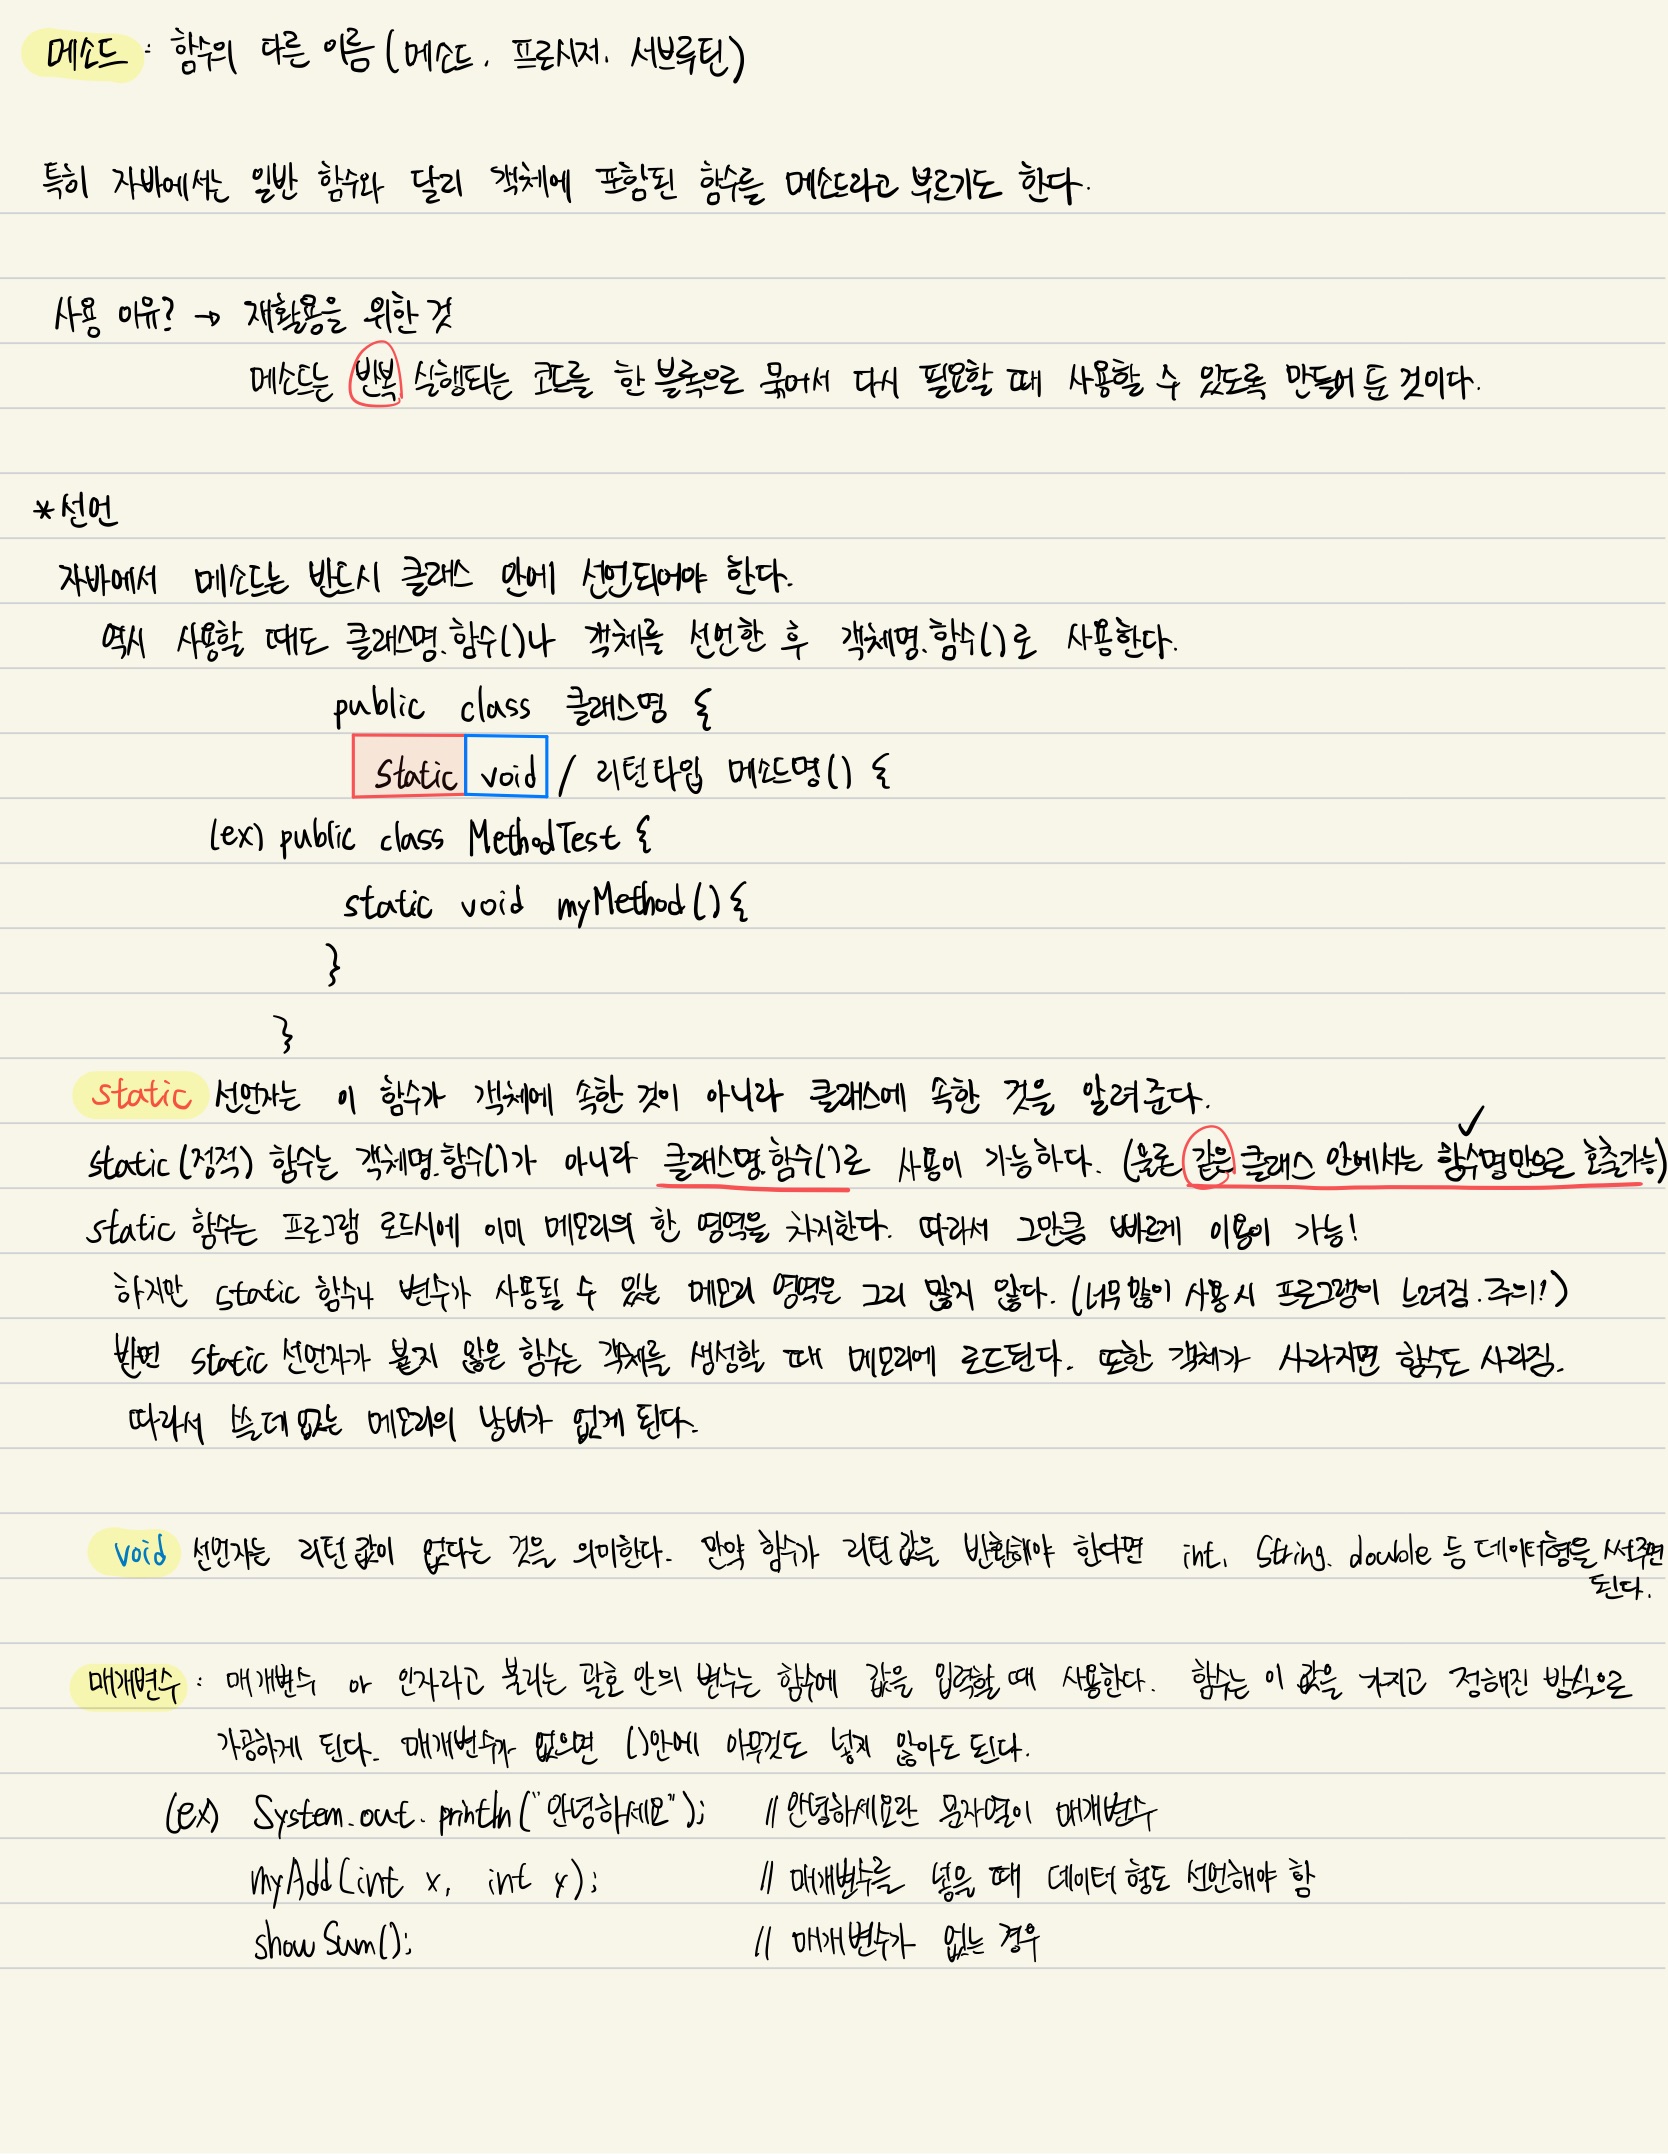 메소드 : 함수의 다른 이름 (메소드, 프로시저, 서브루틴)
특히 자바에서는 일반 함수와 달리 객체에 포함된 함수를 메소드라고 부르기도 한다.
사용 이유? → 재활용을 위한 것
메소드는 반복 실행되는 코드를 한 블록으로 묶어서 다시 필요할 때 사용할 수 있도록 만들어 둔 것이다.
*선언
자바에서 메소드는 반드시 클래스 안에 선언되어야 한다.
역시 사용할 때도 클래스명.함수()나 객체를 선언한 후 객체명.함수()로 사용한다.
public class 클래스명 {
static void / 리턴타입 메소드명() {
(ex) public class MethodTest {
static void myMethod() {
}
}
static 선언자는 이 함수가 객체에 속한 것이 아니라 클래스에 속한 것을 알려준다.
static(정적) 함수는 객체명.함수()가 아니라 클래스명.함수()로 사용이 가능하다. (물론 같은 클래스 안에서는 함수명만으로 호출가능)
static 함수는 프로그램 로드시에 이미 메모리의 한 영역을 차지한다. 따라서 그만큼 빠르게 이용이 가능!
하지만 static 함수나 변수가 사용될 수 있는 메모리 영역은 그리 많지 않다. (너무 많이 사용시 프로그램이 느려짐. 주의!)
반면 static 선언자가 붙지 않은 함수는 객체를 생성할 때 메모리에 로드된다. 또한 객체가 사라지면 함수도 사라짐.
따라서 쓸데없는 메모리의 낭비가 없게 된다.
void 선언자는 리턴 값이 없다는 것을 의미한다. 만약 함수가 리턴 값을 반환해야 한다면 int, String, double 등 데이터형을 써주면
된다.
매개변수 : 매개변수 or 인자라고 불리는 괄호 안의 변수는 함수에 값을 입력할 때 사용한다. 함수는 이 값을 가지고 정해진 방식으로
가공하게 된다. 매개변수가 없으면 ()안에 아무것도 넣지 않아도 된다.
(ex) System.out.println("안녕하세요"); // 안녕하세요란 문자열이 매개변수
myAdd(int x, int y); // 매개변수를 넣을 때 데이터 형도 선언해야 함
showSum(); // 매개변수가 없는 경우